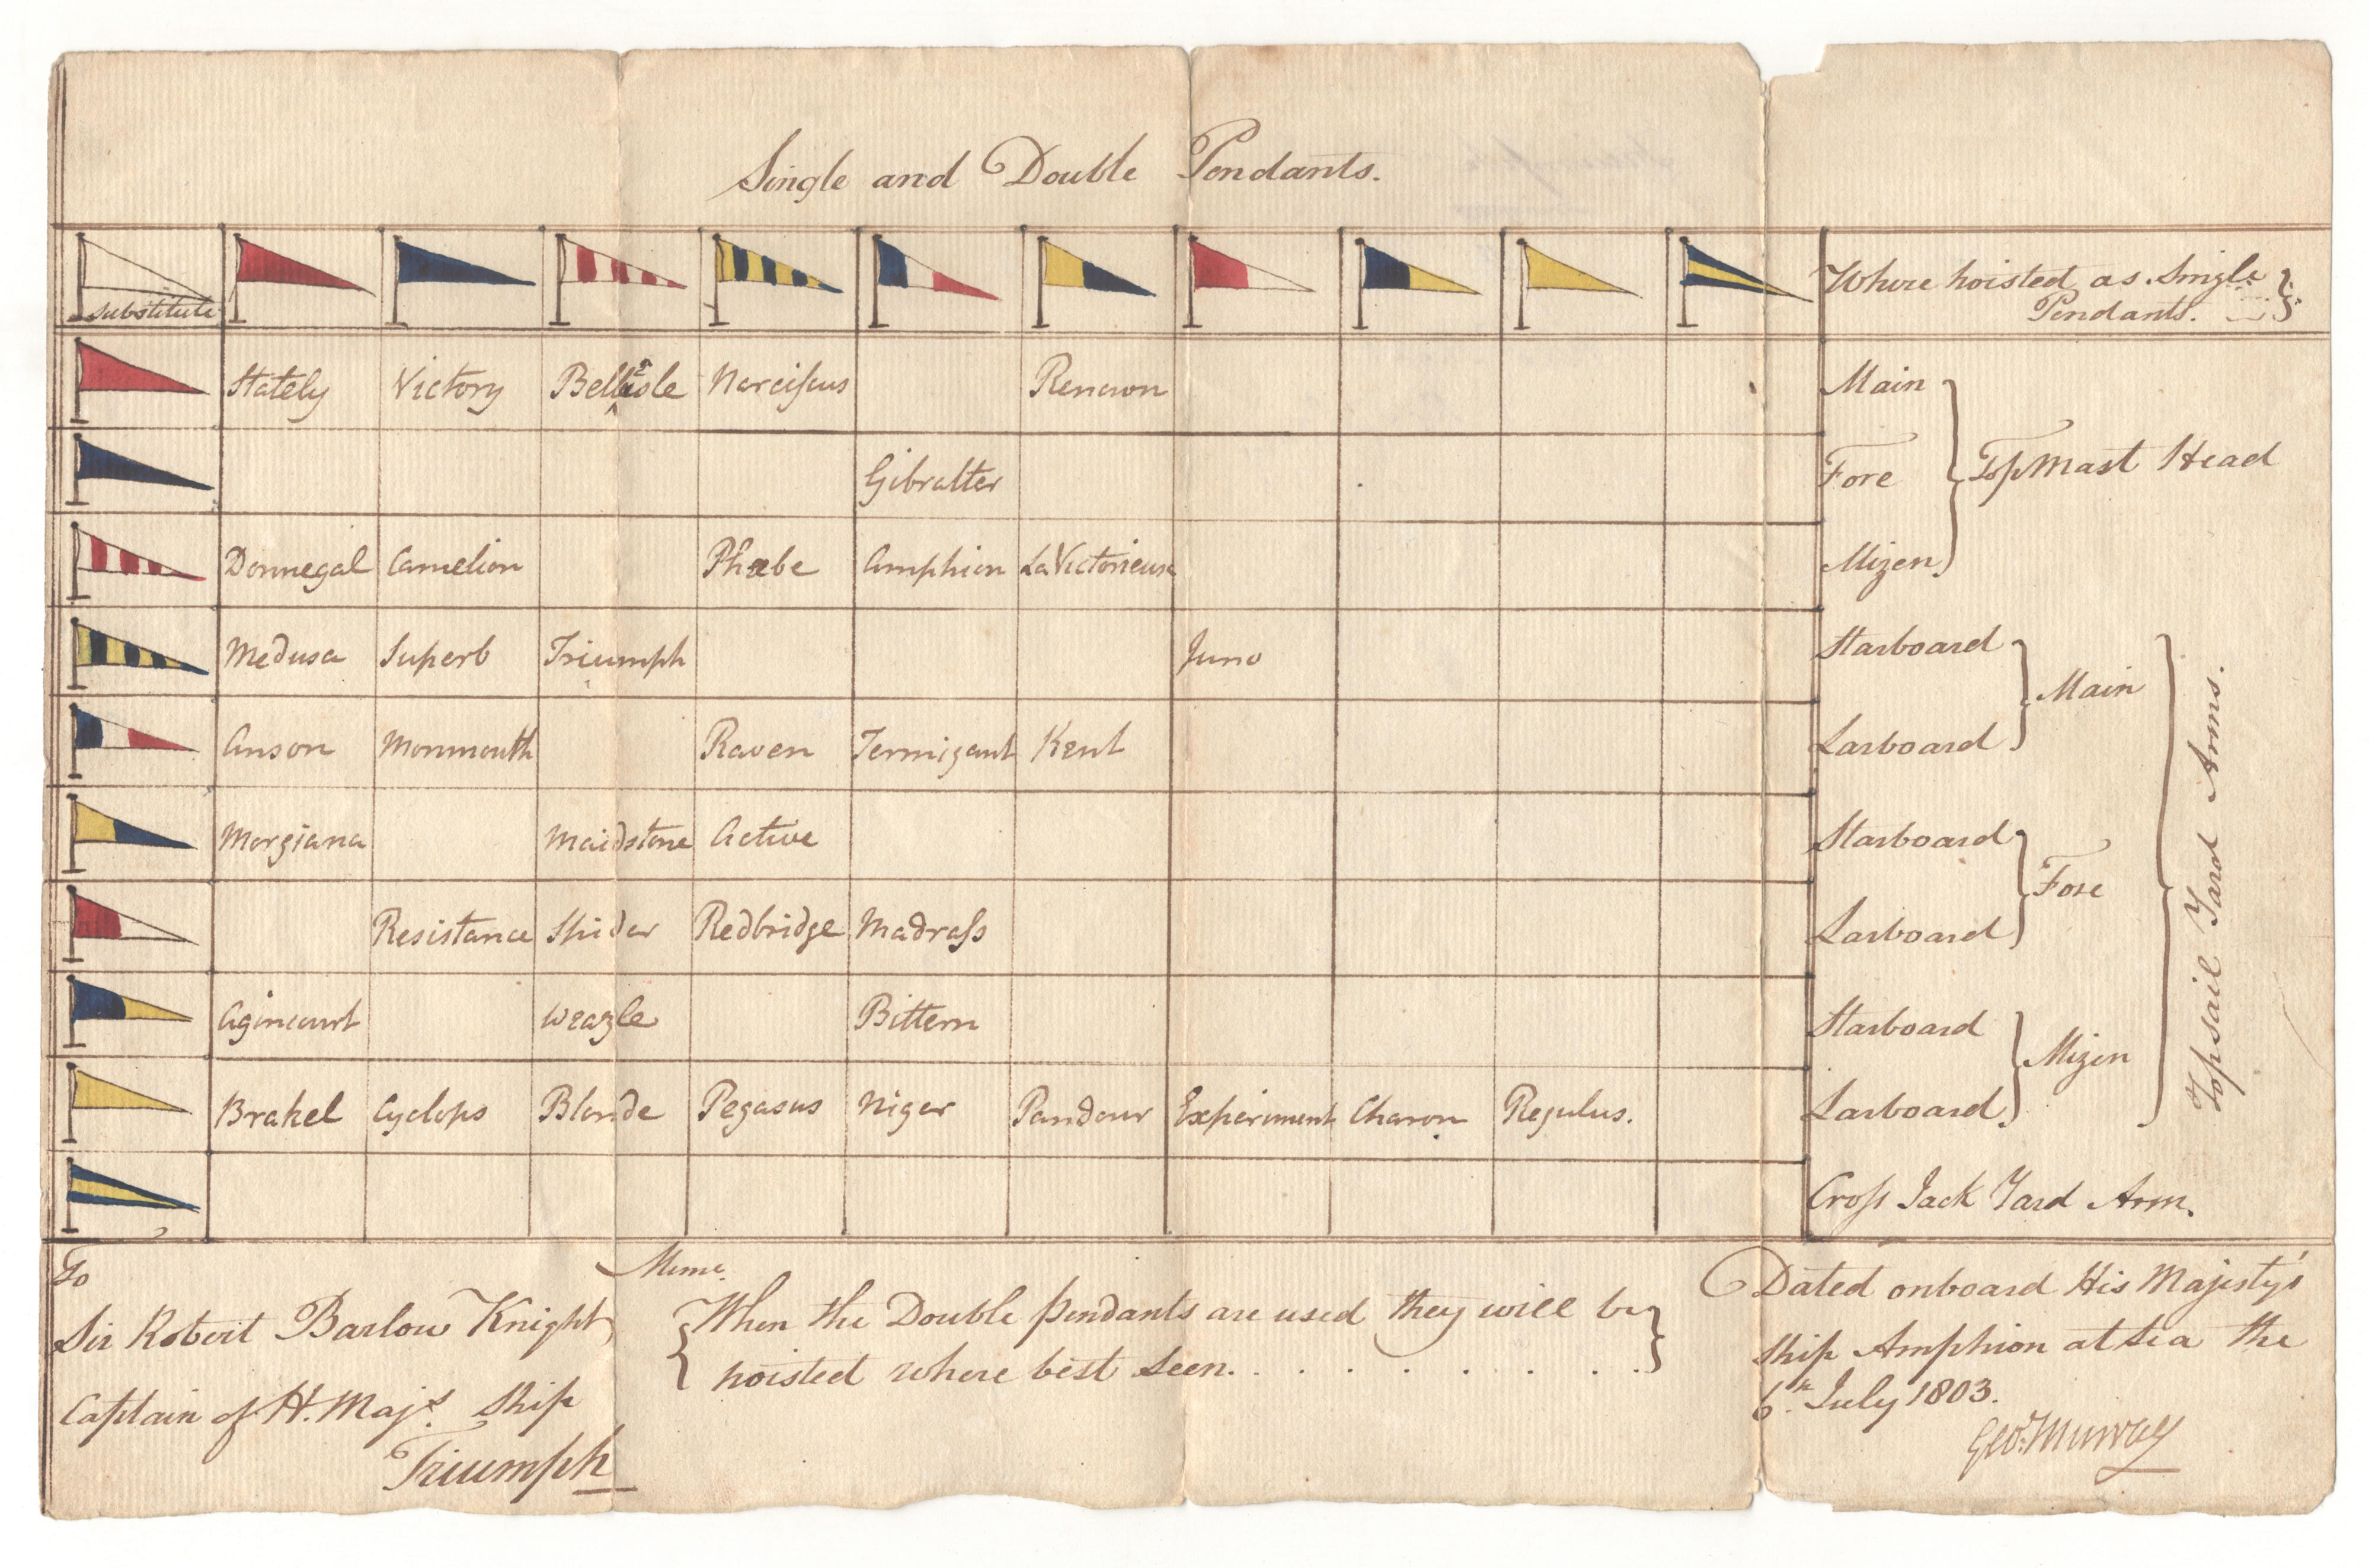 Single and Double Pendants.
Substitute
Where hoisted as Single
Pendants.
Stately Victory Bellisle Narcissus Renown Main
Gibralter Fore TopMast Head
Donnegal Camelion Phœbe Amphion La Victorieuse Mizen
Medusa Superb Triumph Juno Starboard
Main
Anson Monmouth Raven Termigant Kent Larboard
Morgiana Maidstone Active Starboard
Fore
Resistance Spider Redbridge Madrass Larboard
Agincourt Weazle Bittern Starboard
Mizen
Brakel Cyclops Blonde Pegasus Niger Pandour Experiment Charon Regulus. Larboard
Topsail Yard Arms.
Cross Jack Yard Arm.
To
Sir Robert Barlow Knight
Captain of H. Maj.s Ship
Triumph
Memo.
When the Double pendants are used they will be
hoisted where best seen. . . . . . . .
Dated onboard His Majesty's
Ship Amphion at Sea the
6th July 1803.
Geo. Murray